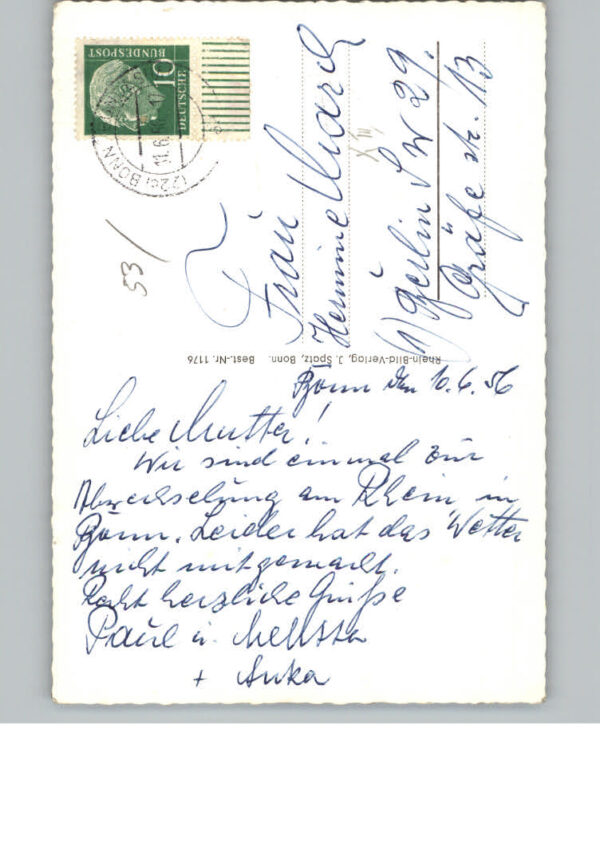 DEUTSCHE
BUNDESPOST
10
(22c) BONN
53/
Frau
Hermine March
1) Berlin SW 29.
Gräfestr. 13
Rhein-Bild-Verlag, J. Spatz, Bonn. Best.-Nr. 1176
Bonn den 10.6.56
Liebe Mutter!
Wir sind einmal zur
Abwechselung am Rhein in
Bonn. Leider hat das Wetter
nicht mitgemacht.
Recht herzliche Grüße
Paul u.
+ Anka